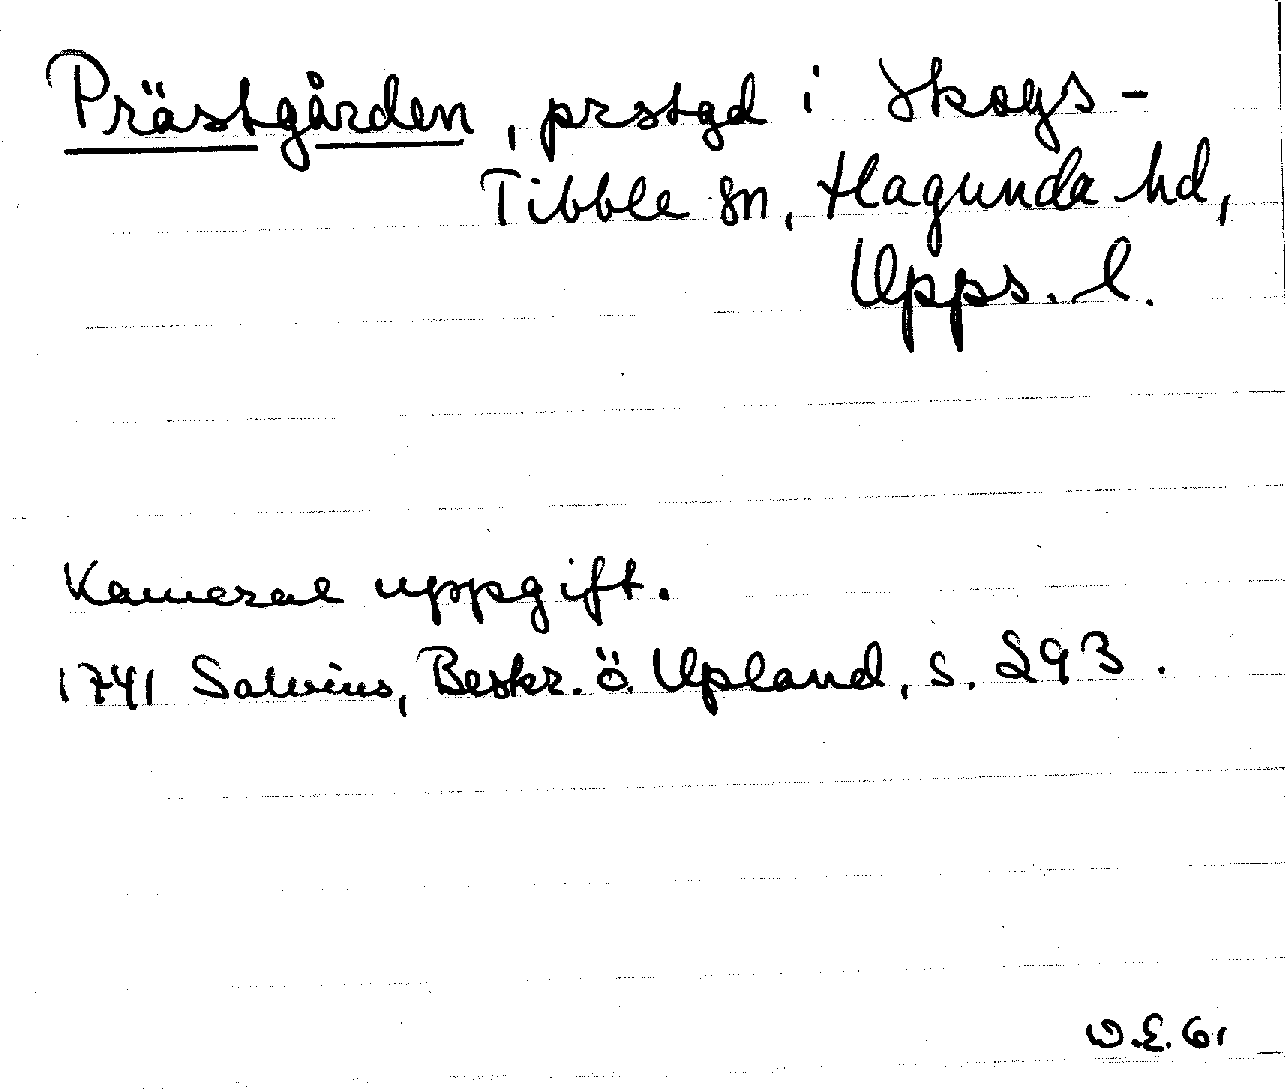 Prästgården, prstgd i Skogs-
Tibble sn, Hagunda hd,
Upps. l.
Kameral uppgift.
1741 Salvius, Beskr. ö. Upland, s. 293.
O.E. 61